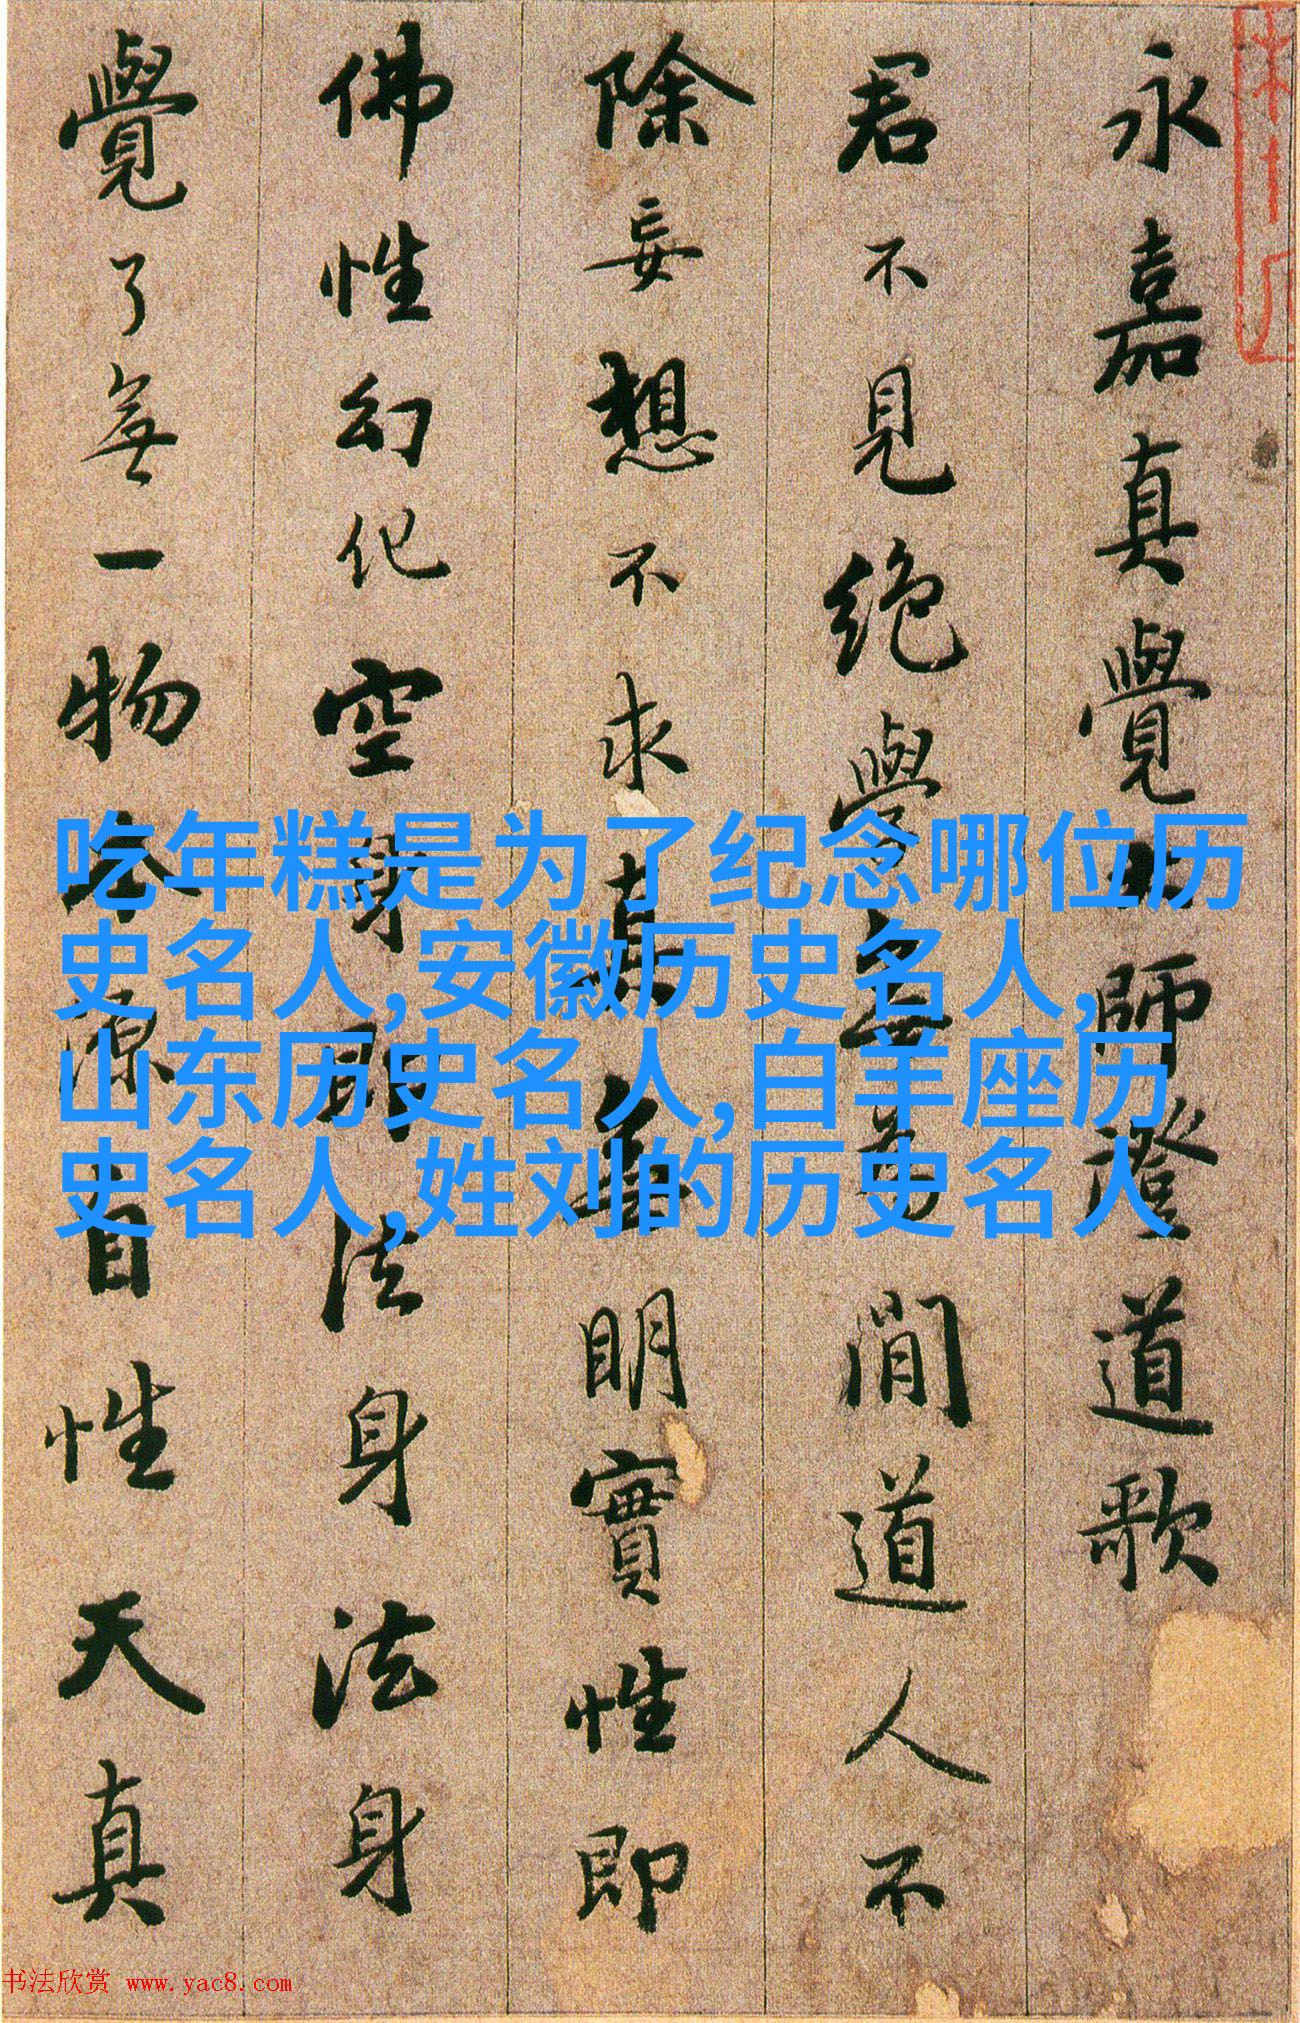 永嘉真覺大師證道歌
君不見絕學無為閒道人不
除妄想不求真無明實性即
佛性幻化空身即法身法身
覺了無一物本源自性天真
吃年糕是为了纪念哪位历
史名人,安徽历史名人,
山东历史名人,白羊座历
史名人,姓刘的历史名人
书法欣赏 www.yac8.com